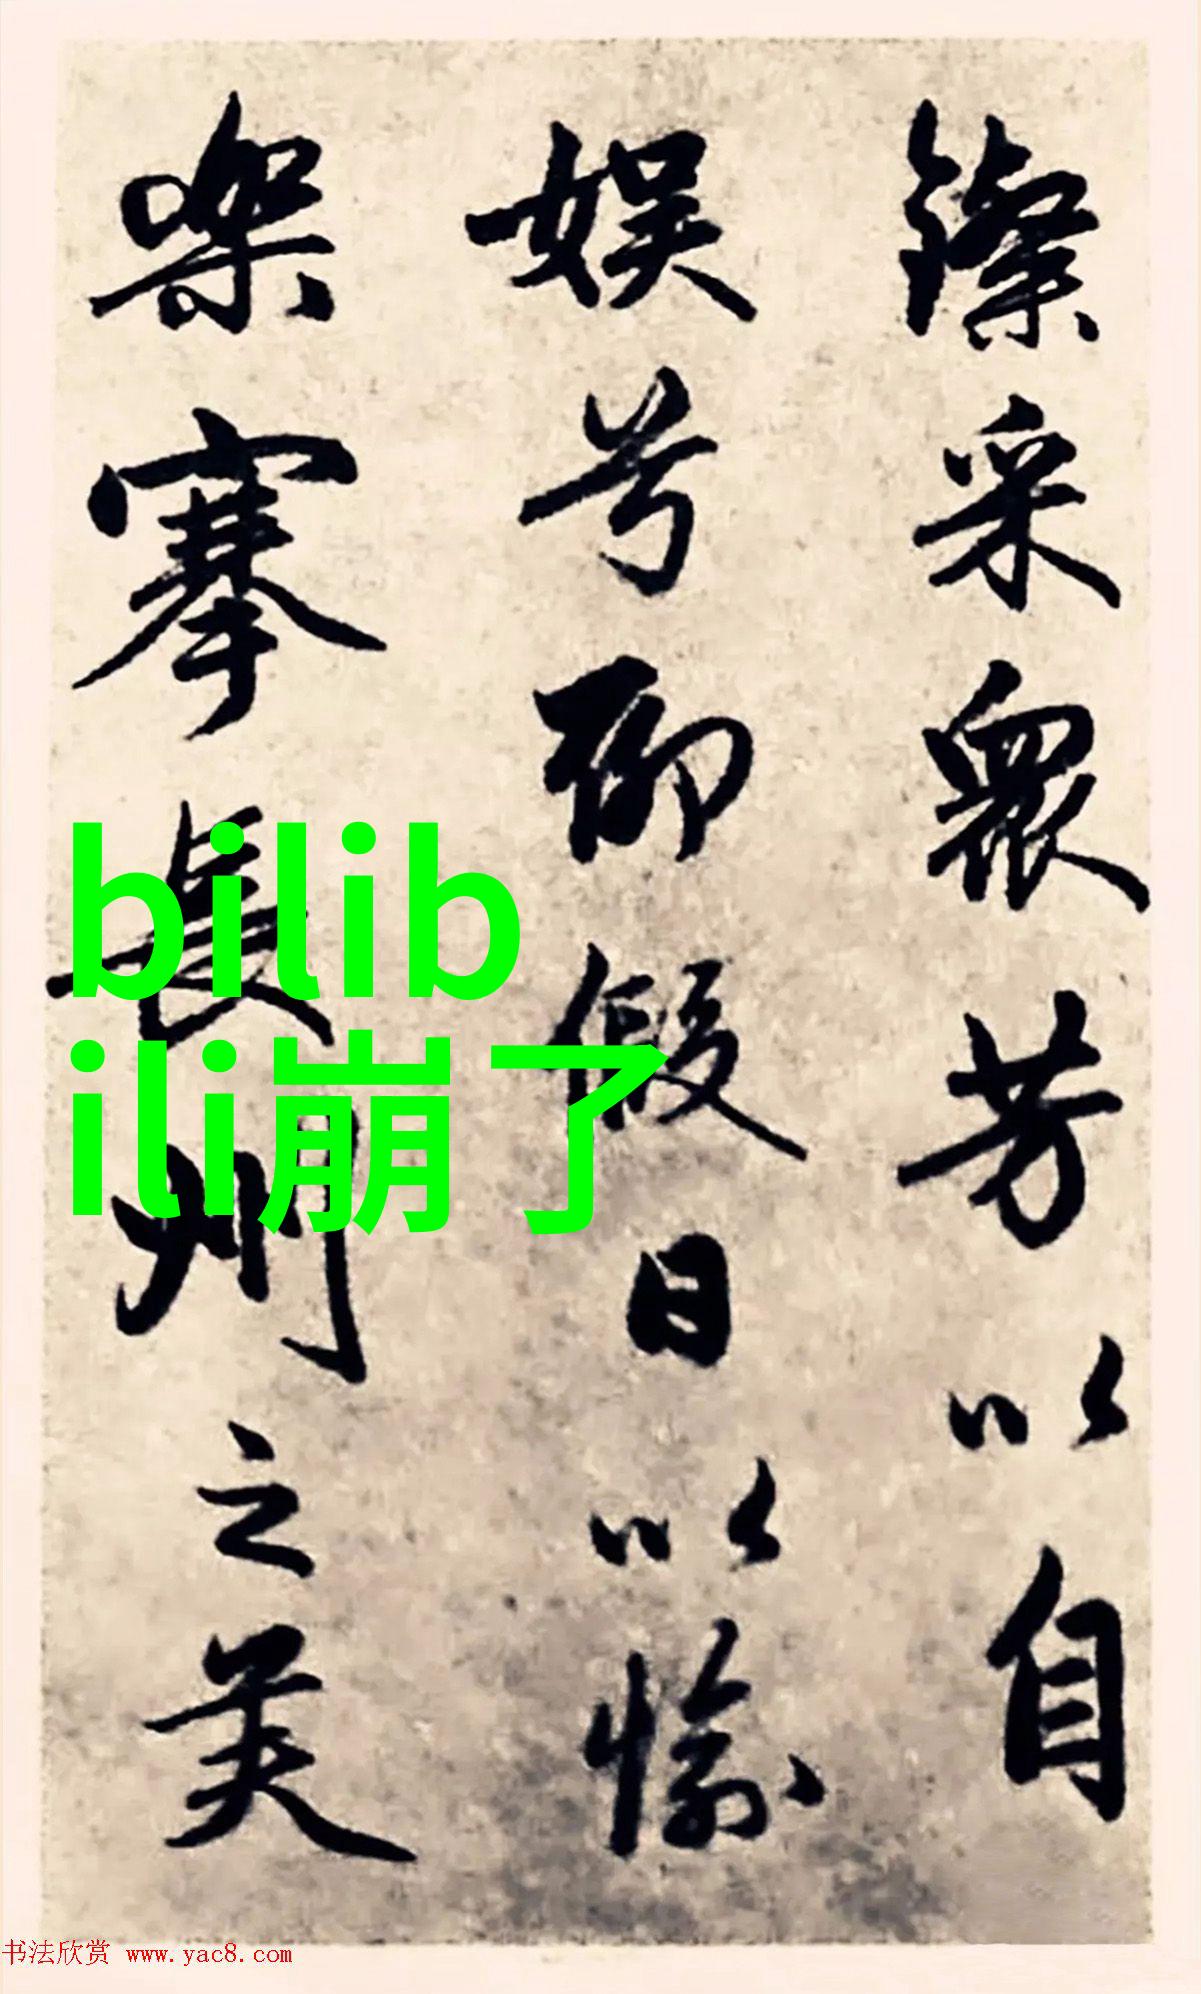 采衆芳以自
娱兮聊假日以愉
樂搴長州之美
bilib
ili崩了
书法欣赏 www.yac8.com